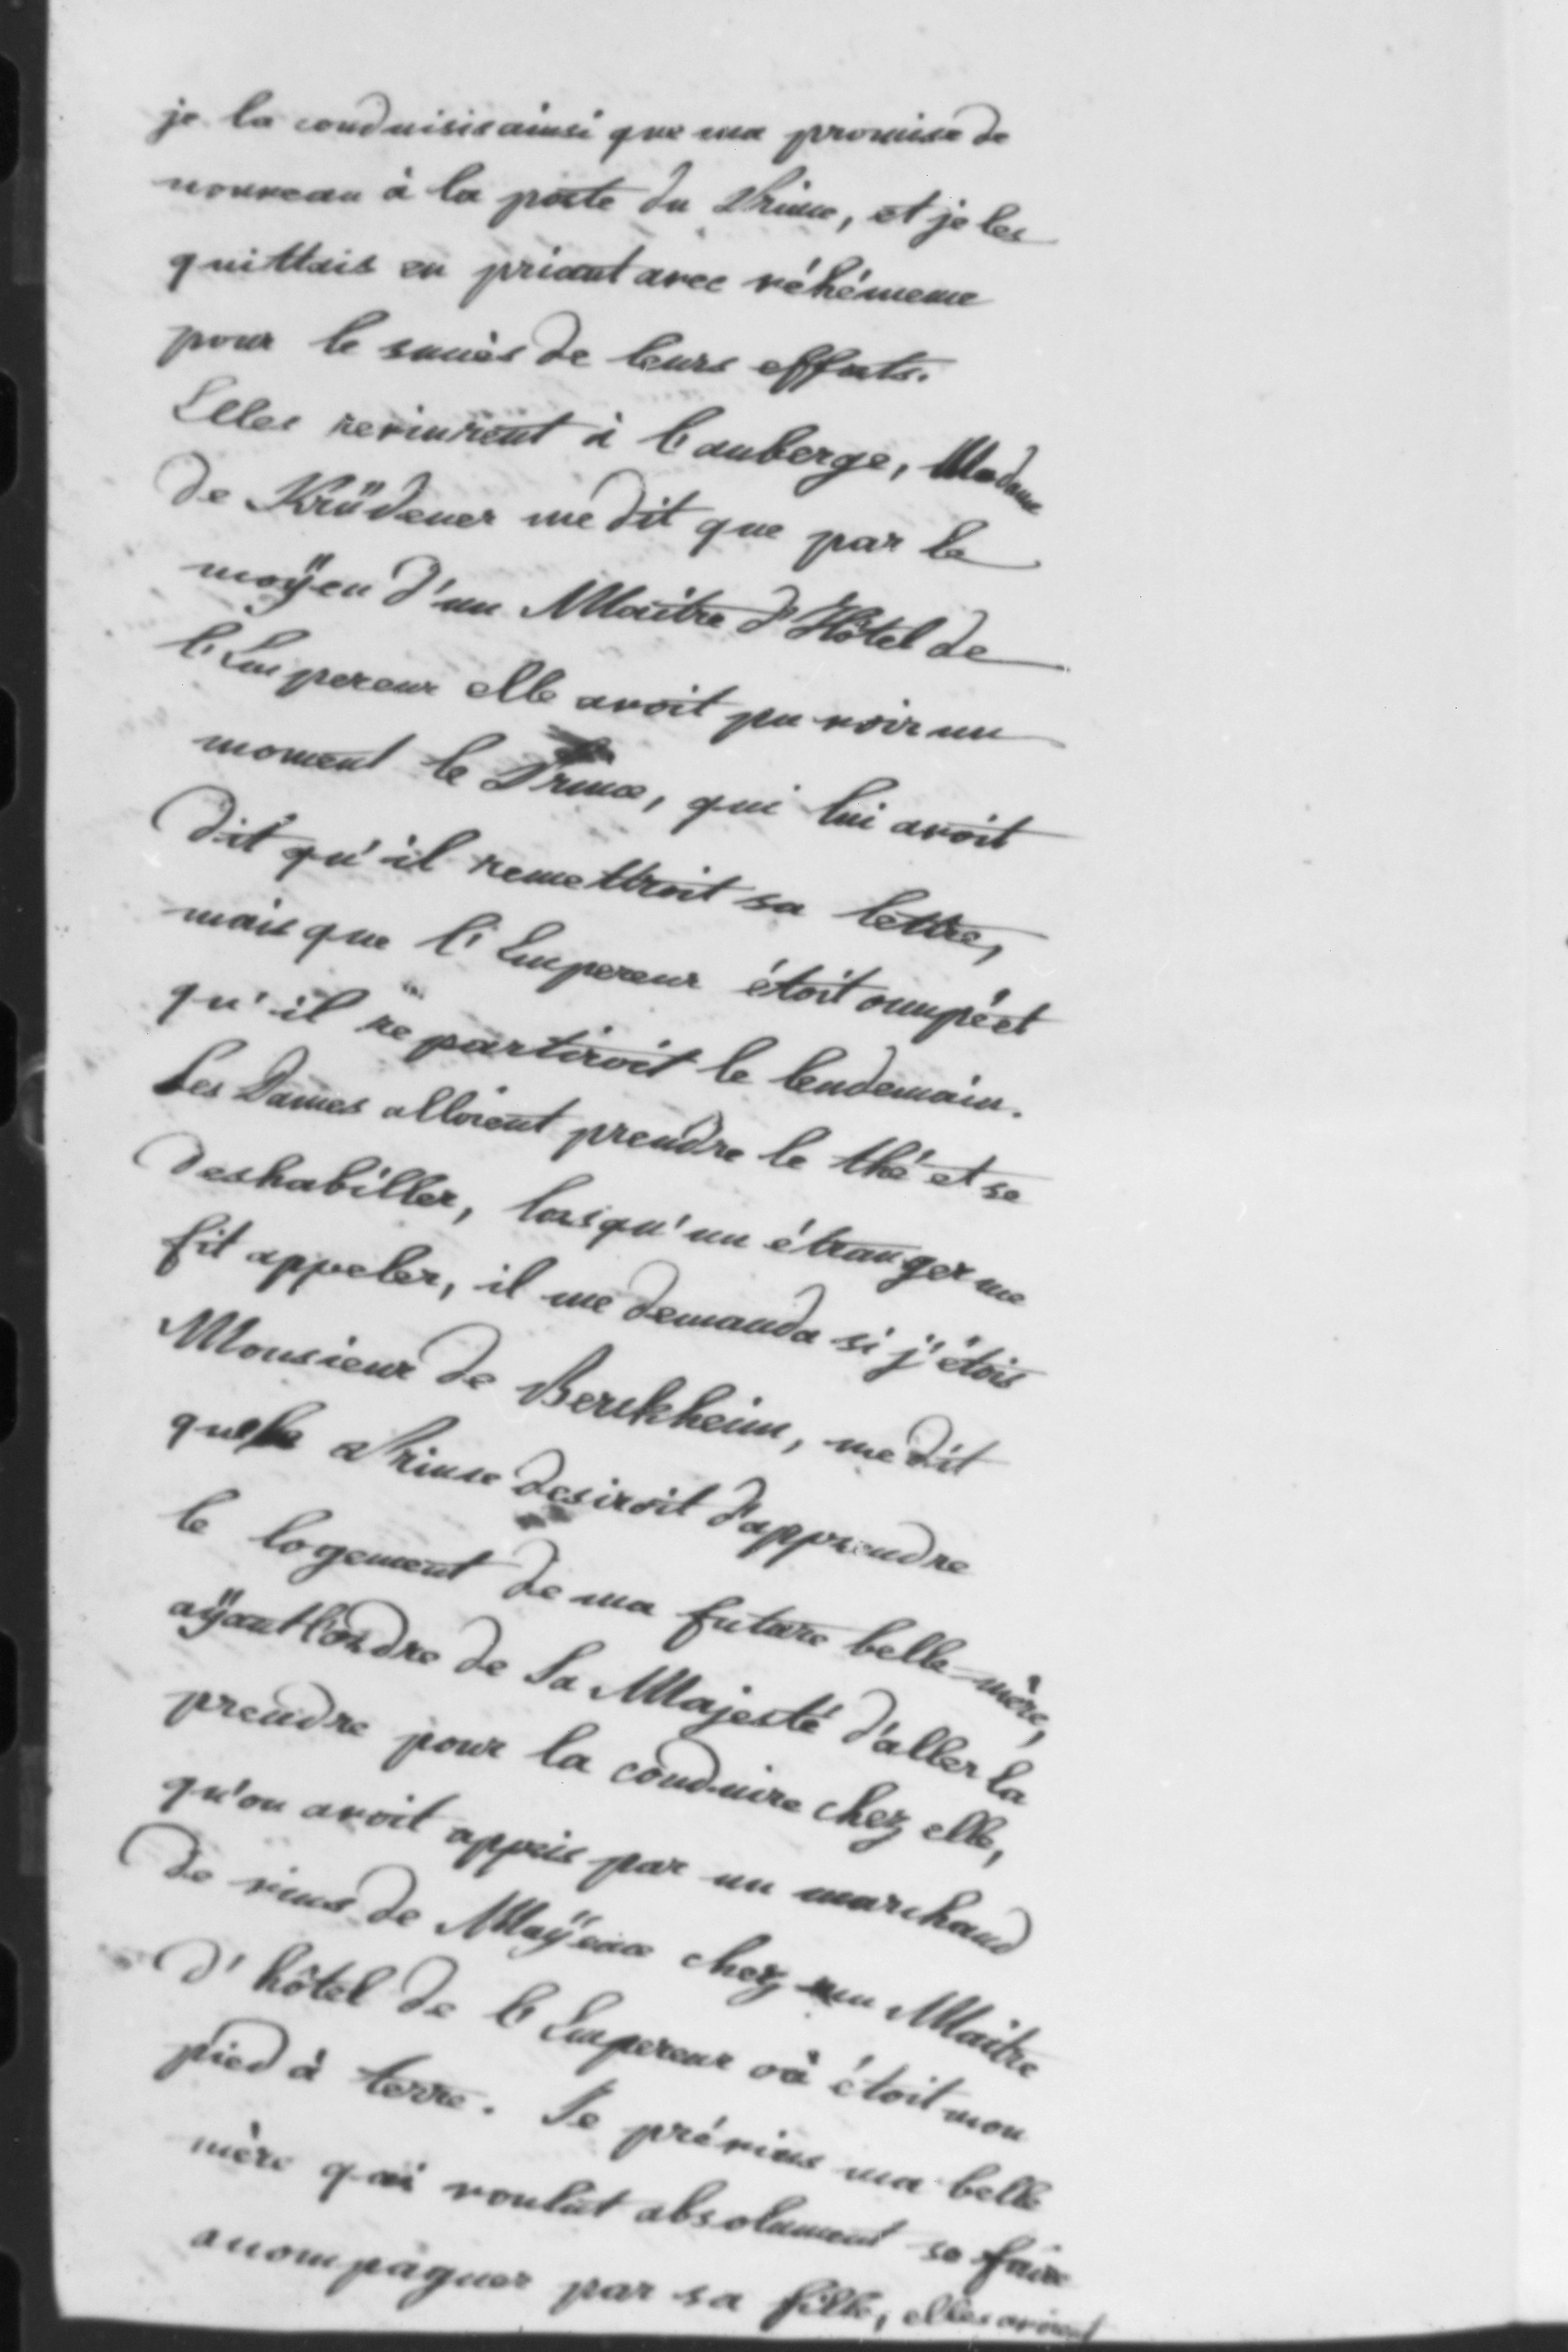 je la conduisis ainsi que ma promise de
nouveau à la porte du Prince, et je les
quittais en priant avec véhémence
pour le succès de leurs efforts.
Elles revinrent à l'auberge, Madame
de Krüdener me dit que par le
moÿen d'un Maître d'Hôtel de
l'Empereur elle avoit pu voir un
moment le Prince, qui lui avoit
dit qu'il remettroit sa lettre,
mais que l'Empereur étoit occupé et
qu'il repartiroit le lendemain.
Les Dames alloient prendre le thé et se
deshabiller, lorsqu'un étranger me
fit appeler, il me demanda si j'étois
Monsieur de Berckheim, me dit
que le Prince desiroit d'apprendre
le logement de ma future belle-mère,
aÿant l'ordre de Sa Majesté d'aller la
prendre pour la conduire chez elle,
qu'on avoit appris par un marchand
de vins de Maÿence chez un Maitre
d'hôtel de l'Empereur où étoit mon
pied à terre. Je prévins ma belle
mère qui voulut absolument se faire
accompagner par sa fille, elles avoient